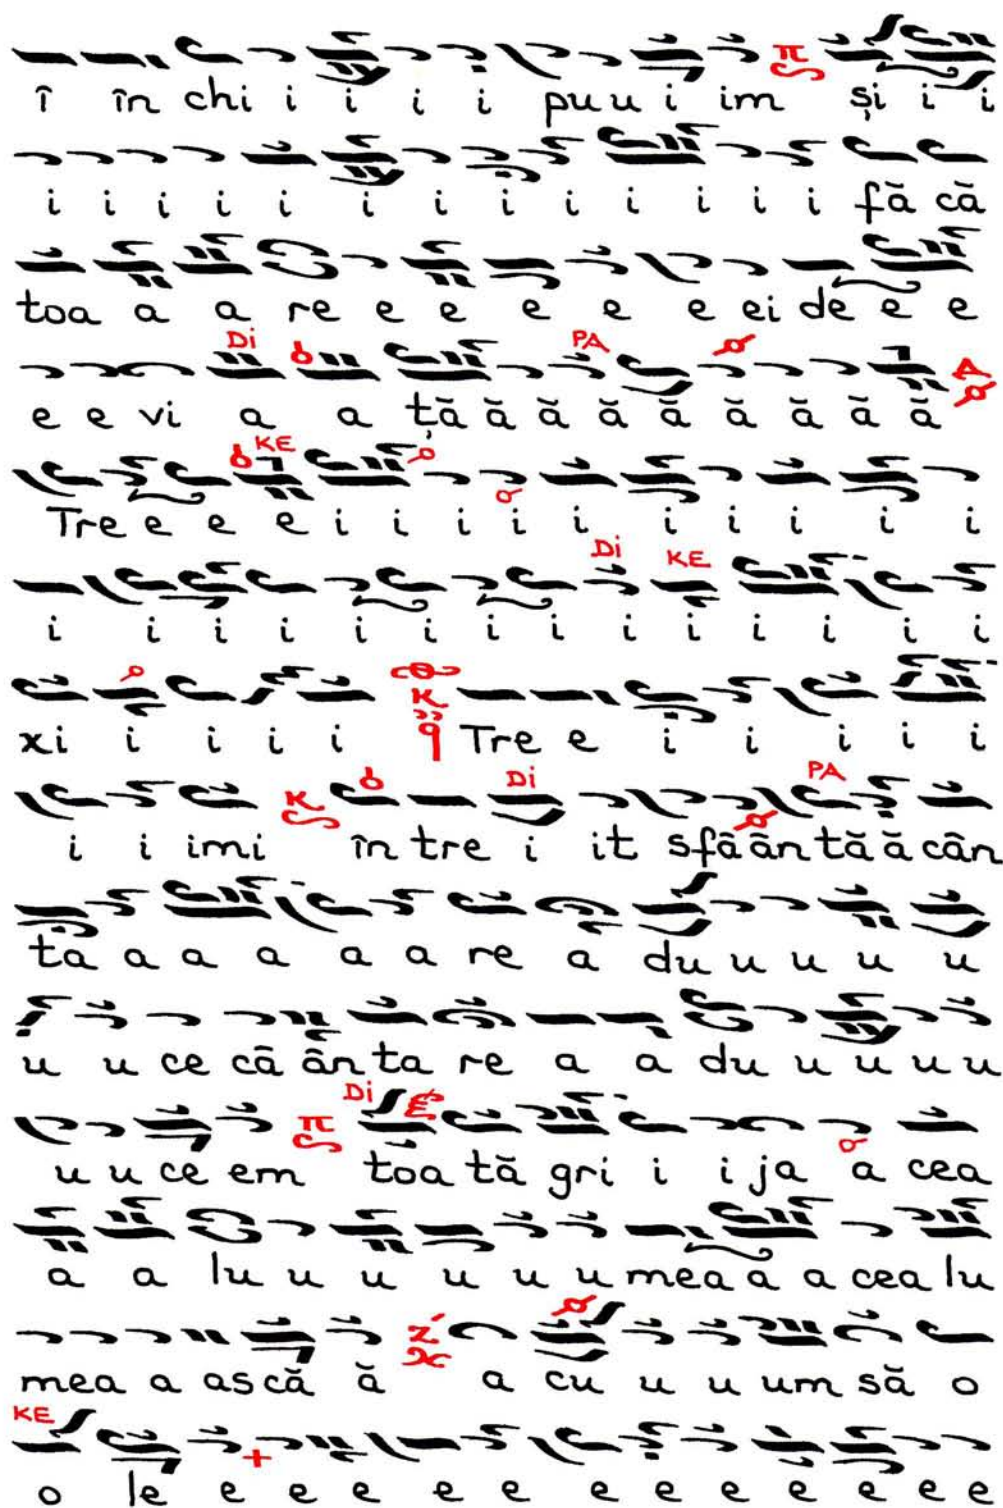 î în chi i i i i pu u i im π și i i
i i i i i i i i i i i i i fă că
toa a a re e e e e e ei de e e
Di PA
e e vi a a ță ă ă ă ă ă ă ă ă
KE
Tre e e e i i i i i i i i i i
Di KE
i i i i i i i i i i i i i i
xi i i i i K Tre e i i i i i
Di PA
i i imi K în tre i it sfâ ân tă ă cân
ta a a a a a re a du u u u u
u u ce câ ân ta re a a du u u u u
Di
u u ce em π toa tă gri i i ja a cea
a a lu u u u u u mea a a cea lu
mea a as că ă Z΄ a cu u u um să o
KE
o le e e e e e e e e e e e